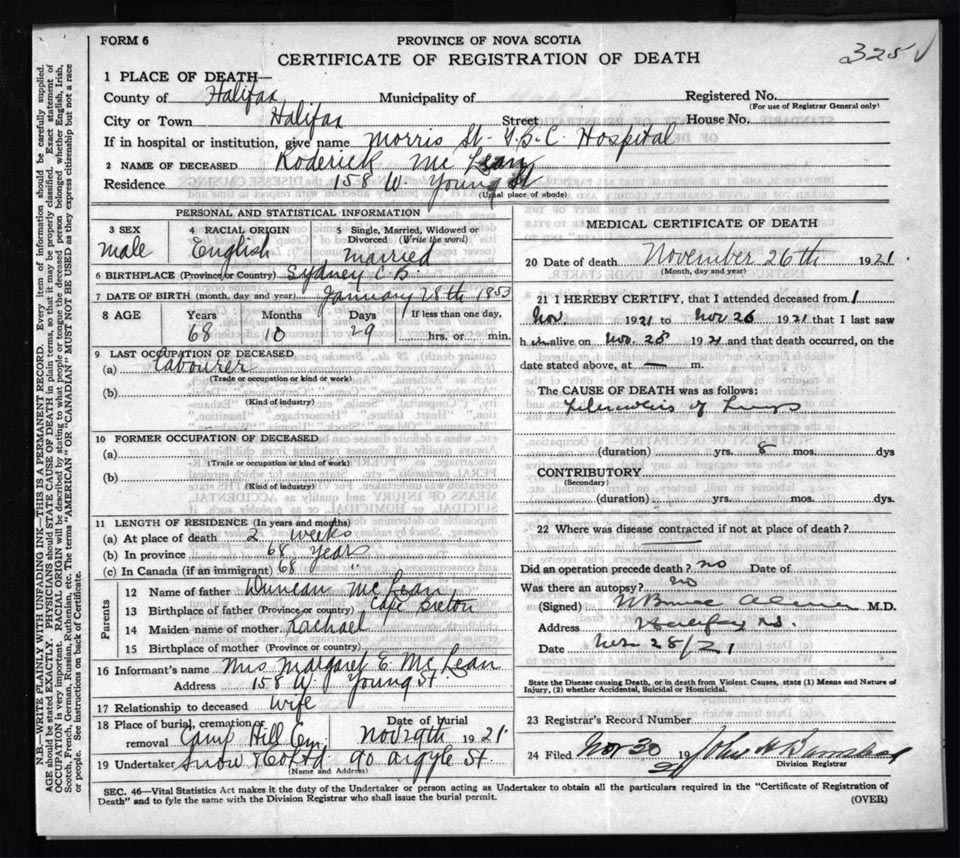 FORM 6
PROVINCE OF NOVA SCOTIA
325 √
CERTIFICATE OF REGISTRATION OF DEATH
1 PLACE OF DEATH—
County of Halifax Municipality of Registered No.
(For use of Registrar General only)
City or Town Halifax Street House No.
If in hospital or institution, give name Morris St. T.B.C. Hospital
2 NAME OF DECEASED Roderick Mc Lean
Residence 158 W. Young St
(Usual place of abode)
PERSONAL AND STATISTICAL INFORMATION
3 SEX 4 RACIAL ORIGIN 5 Single, Married, Widowed or Divorced (Write the word)
male English married
6 BIRTHPLACE (Province or Country) Sydney C.B.
7 DATE OF BIRTH (month, day and year) January 28th 1853
8 AGE Years Months Days If less than one day,
68 10 29 hrs. or min.
9 LAST OCCUPATION OF DECEASED
(a) Labourer
(Trade or occupation or kind or work)
(b)
(Kind of industry)
10 FORMER OCCUPATION OF DECEASED
(a)
(Trade or occupation or kind of work)
(b)
(Kind of industry)
11 LENGTH OF RESIDENCE (In years and months)
(a) At place of death 2 weeks
(b) In province 68 years
(c) In Canada (if an immigrant) 68 "
Parents
12 Name of father Duncan Mc Lean
13 Birthplace of father (Province or country) Cape Breton
14 Maiden name of mother Rachael
15 Birthplace of mother (Province or country)
16 Informant's name Mrs Margaret E. Mc Lean
Address 158 W. Young St.
17 Relationship to deceased wife
18 Place of burial, cremation or removal Camp Hill Cem. Date of burial Nov 29th 1921
19 Undertaker Snow & Co Ltd 90 Argyle St
(Name and Address)
MEDICAL CERTIFICATE OF DEATH
20 Date of death November 26th 1921
(Month, day and year)
21 I HEREBY CERTIFY, that I attended deceased from 1
Nov. 1921 to Nov 26 1921 that I last saw
h im alive on Nov. 1921 and that death occurred, on the
date stated above, at — m.
The CAUSE OF DEATH was as follows:
Tuberculosis of Lungs
(duration) yrs. 8 mos. dys
CONTRIBUTORY
(Secondary)
(duration) yrs. mos. dys.
22 Where was disease contracted if not at place of death?
Did an operation precede death? no Date of
Was there an autopsy? no
(Signed) M.D.
Address Halifax N.S.
Date Nov 28/21
State the Disease causing Death, or in death from Violent Causes, state (1) Means and Nature of
Injury, (2) whether Accidental, Suicidal or Homicidal.
23 Registrar's Record Number
24 Filed Nov 30 1921 John H
Division Registrar
SEC. 46—Vital Statistics Act makes it the duty of the Undertaker or person acting as Undertaker to obtain all the particulars required in the "Certificate of Registration of
Death" and to fyle the same with the Division Registrar who shall issue the burial permit.
(OVER)
N.B.—WRITE PLAINLY WITH UNFADING INK—THIS IS A PERMANENT RECORD. Every item of information should be carefully supplied.
AGE should be stated EXACTLY. PHYSICIANS should STATE CAUSE OF DEATH in plain terms, so that it may be properly classified. Exact statement of
OCCUPATION is very important. RACIAL ORIGIN will be described by stating to what people or tongue the deceased person belonged whether English, Irish,
Scotch, French, German, Russian, Ruthenian, etc. The terms "AMERICAN" OR "CANADIAN" MUST NOT BE USED as they express citizenship but not a race
or people. See instructions on back of Certificate.